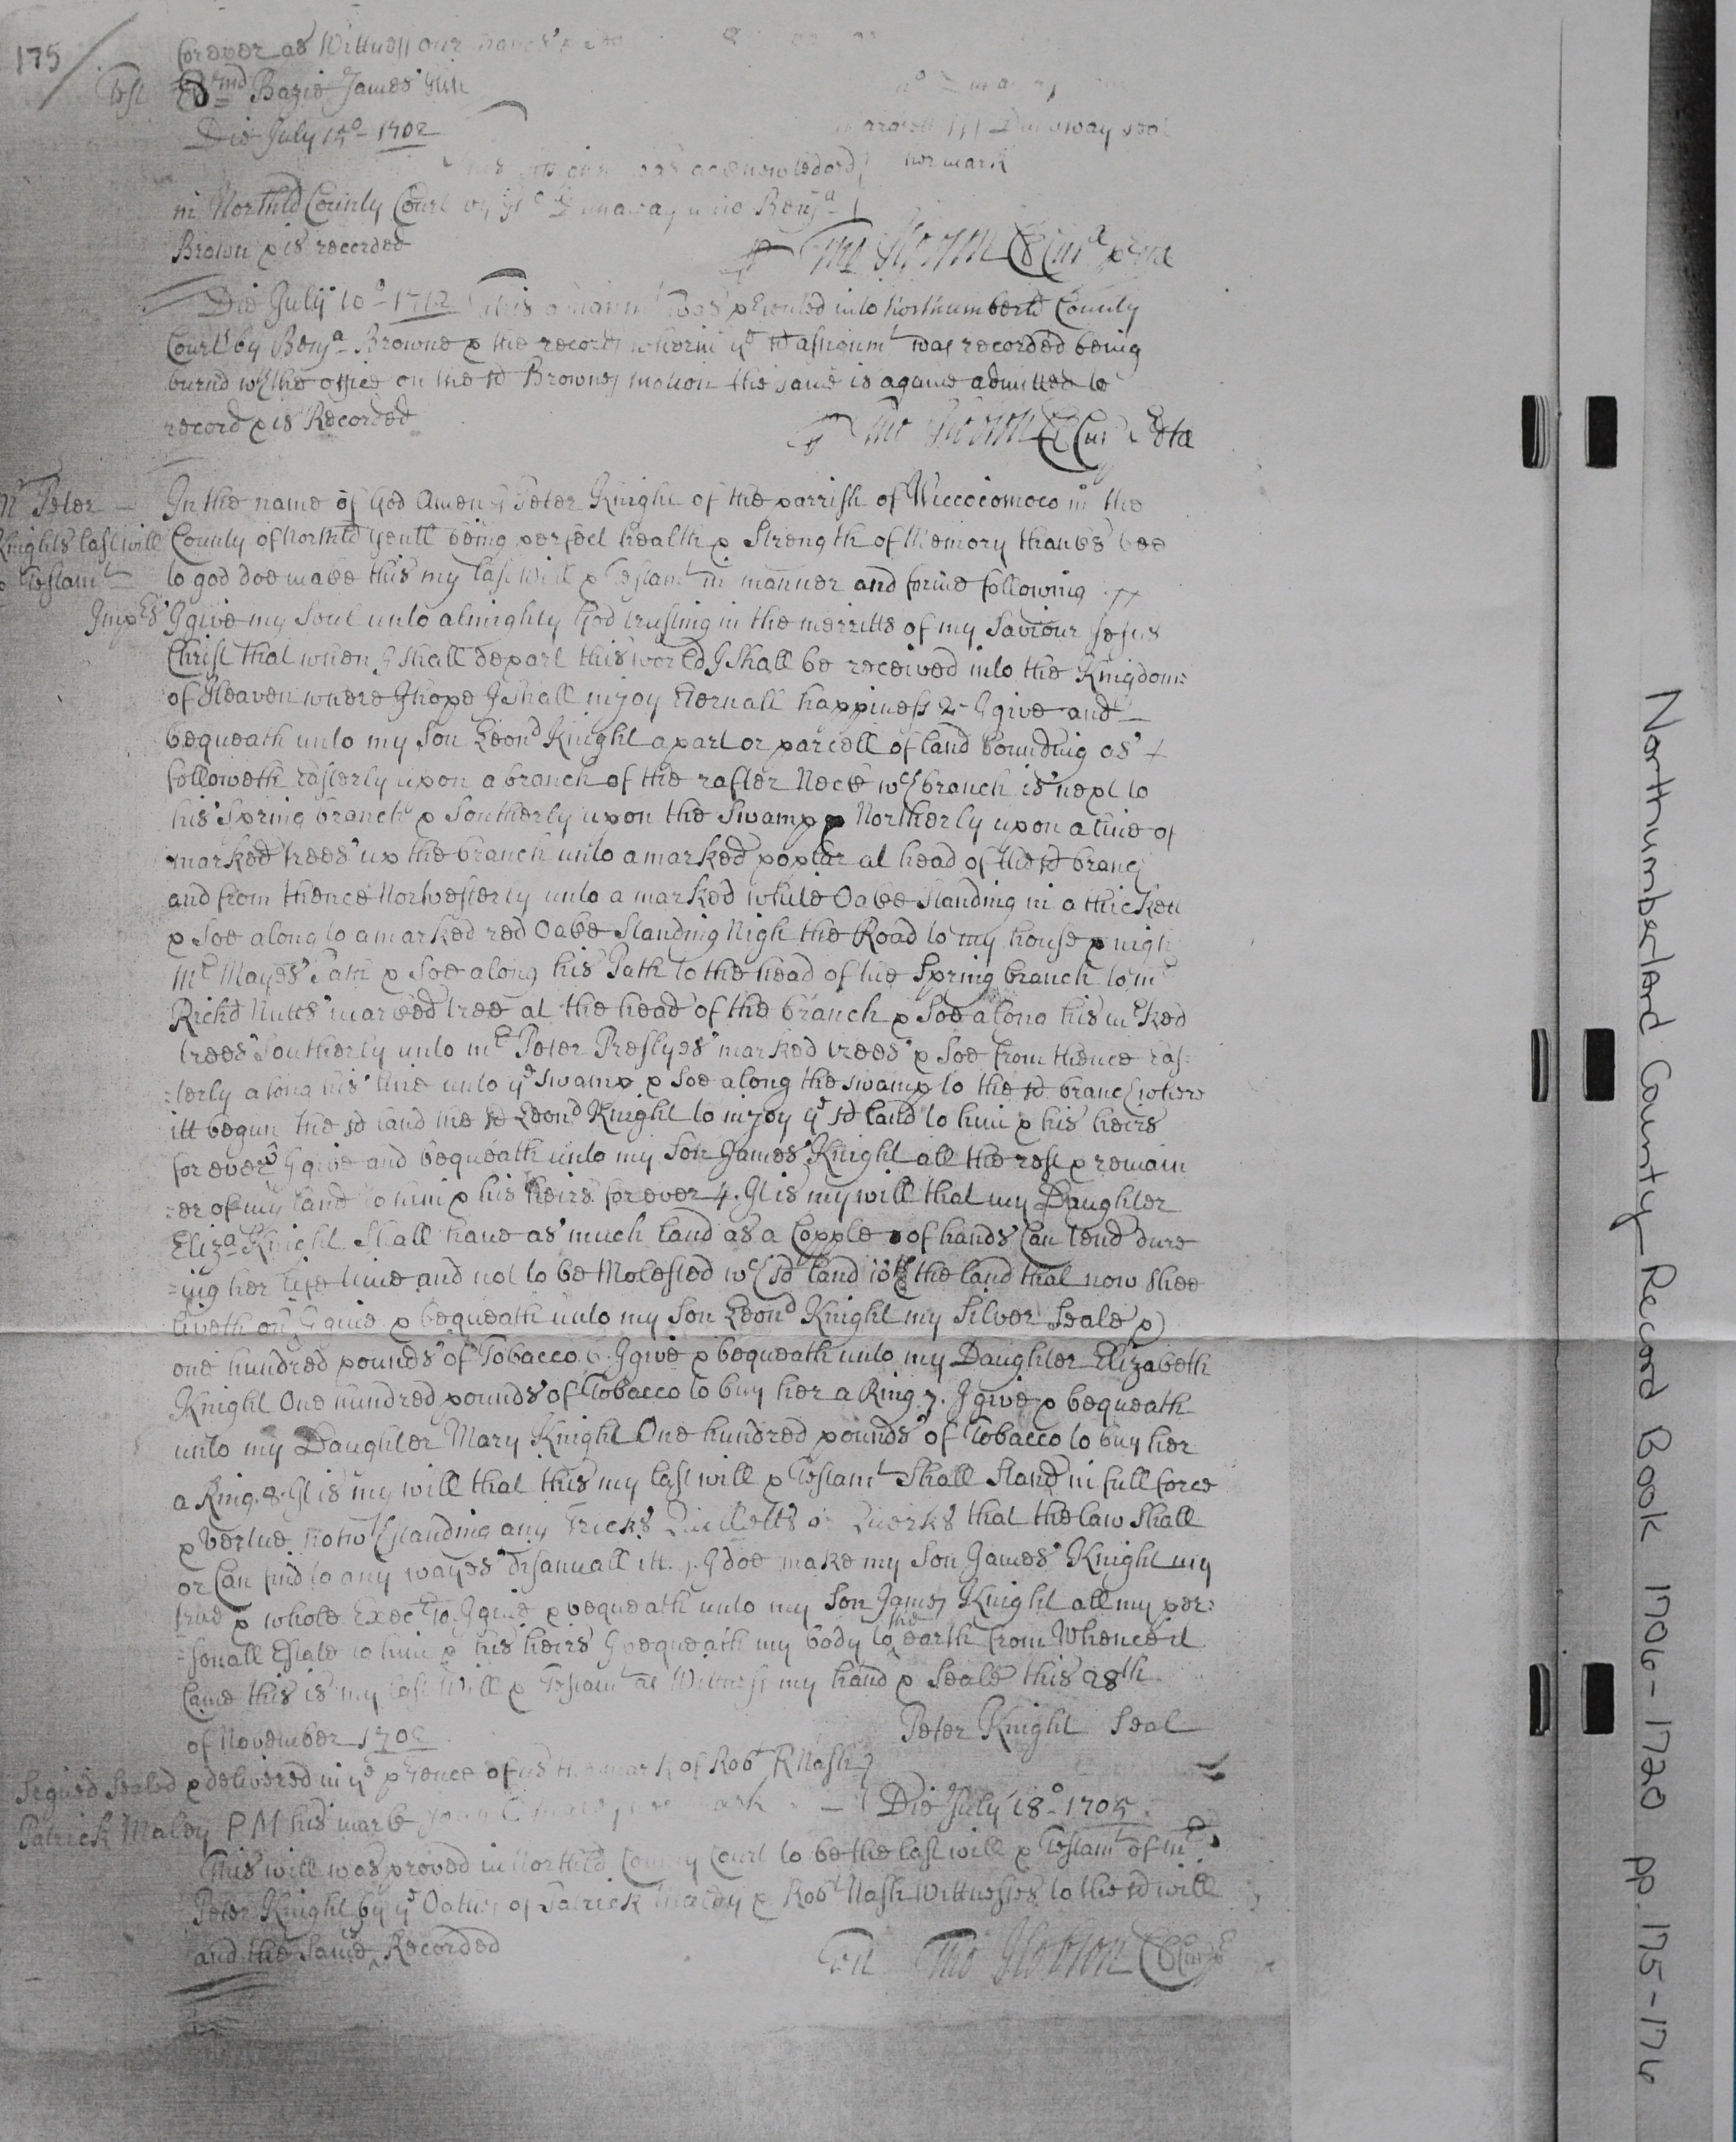 175
forever as Wittness our hands &
Test Edmd Bazie James Hill
Die July 15o 1702
Dunaway seal
was acknowledged her mark
in Northld County Court by Dunaway unto Benja
Brown & is recorded
Tho Hobson Cl Cur
Die July 10o 1712 This was psented into Northumberld County
Court by Benja Browne & the records wherin ye sd assignmt was recorded being
burnd wth the office on the sd Brownes motion the same is againe admitted to
record & is Recorded
Tho Hobson Cl Cur
Mr Peter
Knights last will
& Testamt
In the name of God Amen I Peter Knight of the parrish of Wiccocomoco in the
County of Northld Gentl being perfect health & Strength of Memory thankes bee
to god doe make this my last Will & Testamt in manner and forme following
Imprs I give my Soul unto almighty God trusting in the merritts of my Saviour Jesus
Christ that when I shall depart this world I Shall be received into the Kingdome
of Heaven where I hope I shall injoy Eternall happiness 2 I give and
bequeath unto my Son Leond Knight a part or parcell of land bounding as
followeth Easterly upon a branch of the rafter Neck wch branch is next to
his Spring branch & Southerly upon the Swamp & Northerly upon a line of
marked trees up the branch unto a marked poplar at head of the sd branch
and from thence Norwesterly unto a marked white Oake Standing in a thickett
& Soe along to a marked red Oake Standing Nigh the Road to my house & nigh
Mr Mayes Path & Soe along his Path to the head of the Spring branch to mr
Richd Nutts marked tree at the head of the branch & Soe along his mrked
trees Southerly unto mr Peter Preslyes marked trees & Soe from thence Eas:
:terly along his line unto ye swamp & Soe along the swamp to the sd branch where
itt begun the sd land the sd Leond Knight to injoy ye sd land to him & his heirs
for ever 3 I give and bequeath unto my Son James Knight all the rest & remain
:er of my land to him & his heirs for ever 4. It is my will that my Daughter
Eliza Knight Shall have as much land as a Copple of hands Can tend dure
:ing her life time and not to be Molested wch sd land is the land that now shee
liveth on I give & bequeath unto my Son Leond Knight my Silver Seale &
one hundred pounds of Tobacco 6. I give & bequeath unto my Daughter Elizabeth
Knight One hundred pounds of Tobacco to buy her a Ring 7. I give & bequeath
unto my Daughter Mary Knight One hundred pounds of Tobacco to buy her
a Ring. 8. It is my will that this my last will & Testamt Shall Stand in full force
& vertue notwthstanding any Tricks Quilletts or Querks that the law Shall
or Can find to any wayes disanull itt. 9. I doe make my Son James Knight my
true & whole Execr 10. I give & bequeath unto my Son James Knight all my per:
:sonall Estate to him & his heirs I bequeath my body to the earth from Whence it
Came this is my last Will & Testamt as Wittness my hand & Seale this 28th
of November 1702
Peter Knight Seal
Signed Sealed & delivered in ye psence of us the mark of Robt R Nash
Patrick Maley P M his marke
Die July 18o 1705
This will was proved in Northld County Court to be the last will & Testamt of mr
Peter Knight by ye Oathes of Patrick Maley & Robt Nash Wittnesses to the sd will
and the Same is Recorded
Test Tho Hobson Cl Cur
Northumberland County Record Book 1706-1720 pp. 175-176